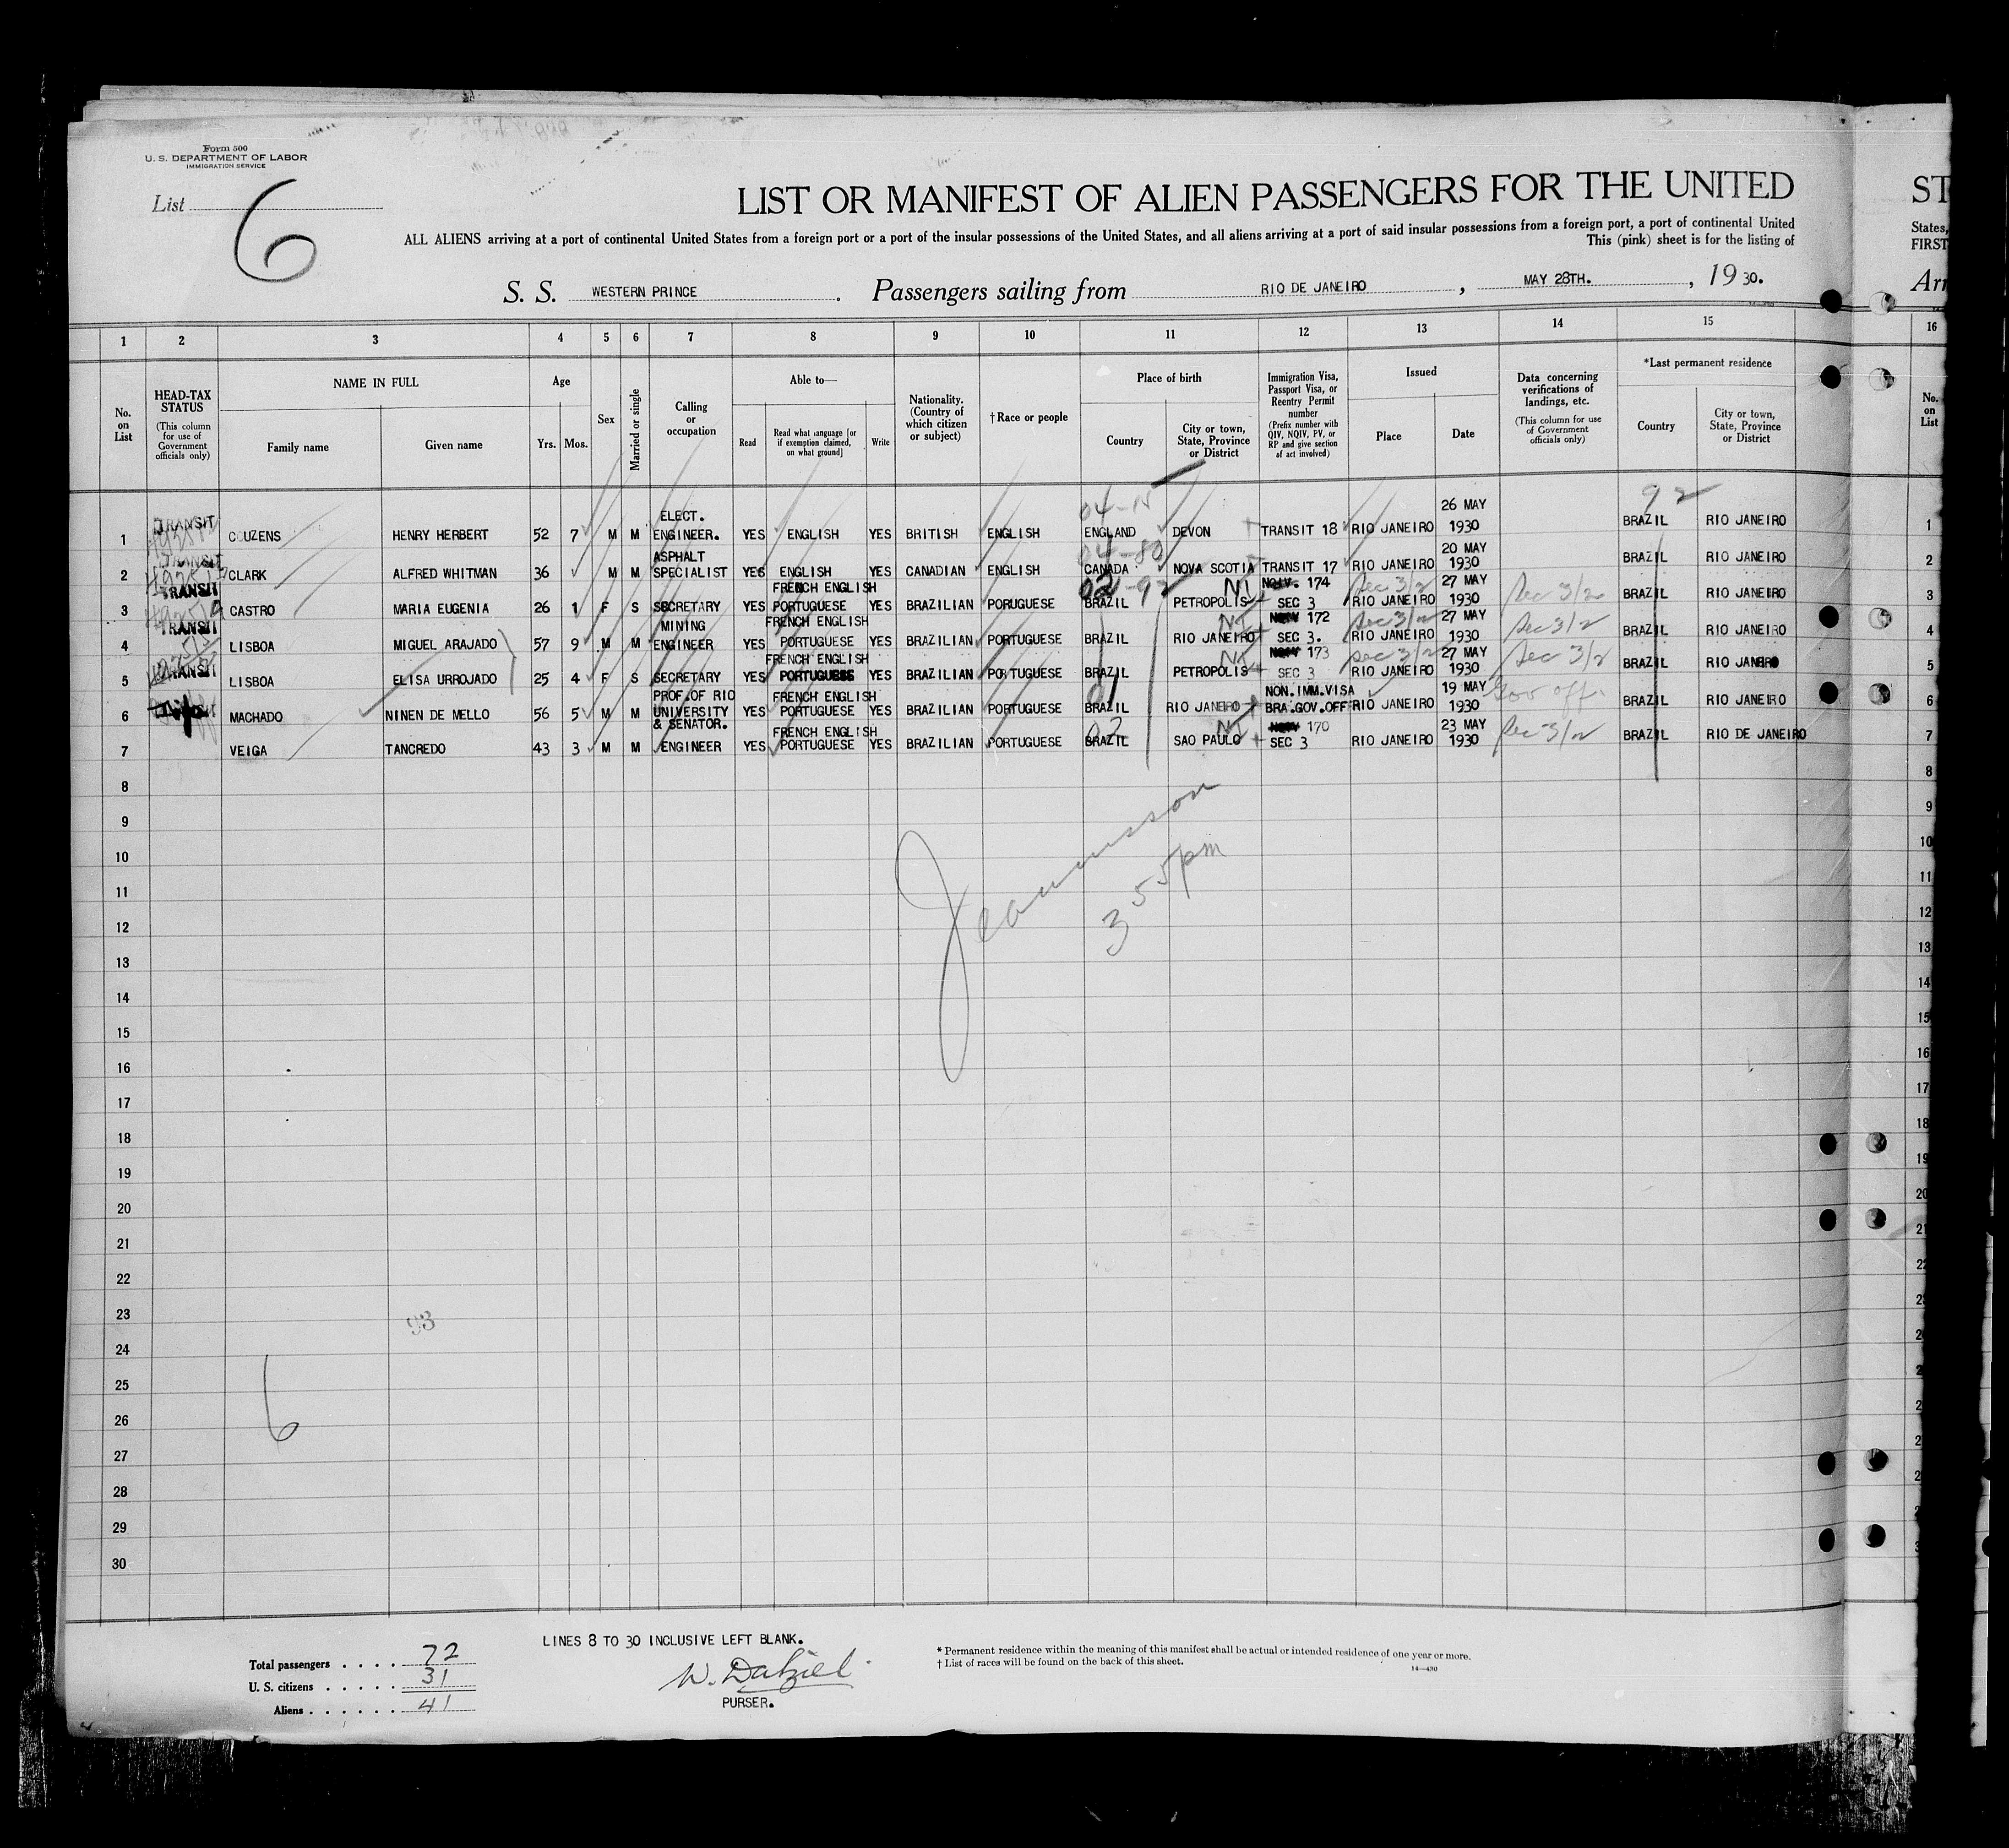 Form 500
U. S. DEPARTMENT OF LABOR
IMMIGRATION SERVICE
List 6
LIST OR MANIFEST OF ALIEN PASSENGERS FOR THE UNITED
ST
ALL ALIENS arriving at a port of continental United States from a foreign port or a port of the insular possessions of the United States, and all aliens arriving at a port of said insular possessions from a foreign port, a port of continental United
States,
This (pink) sheet is for the listing of
FIRST
S. S. WESTERN PRINCE. Passengers sailing from RIO DE JANEIRO, MAY 28TH., 1930.
Arr
1 2 3 4 5 6 7 8 9 10 11 12 13 14 15 16
No. on List
HEAD-TAX STATUS (This column for use of Government officials only)
NAME IN FULL
Family name Given name
Age
Yrs. Mos.
Sex
Married or single
Calling or occupation
Able to—
Read Read what language [or if exemption claimed, on what ground] Write
Nationality. (Country of which citizen or subject)
† Race or people
Place of birth
Country City or town, State, Province or District
Immigration Visa, Passport Visa, or Reentry Permit number (Prefix number with QIV, NQIV, PV, or RP and give section of act involved)
Issued
Place Date
Data concerning verifications of landings, etc. (This column for use of Government officials only)
*Last permanent residence
Country City or town, State, Province or District
No. on List
92
1 TRANSIT COUZENS HENRY HERBERT 52 7 M M ELECT. ENGINEER. YES ENGLISH YES BRITISH ENGLISH ENGLAND DEVON TRANSIT 18 RIO JANEIRO 26 MAY 1930 BRAZIL RIO JANEIRO 1
2 TRANSIT CLARK ALFRED WHITMAN 36 M M ASPHALT SPECIALIST YES ENGLISH YES CANADIAN ENGLISH 04-80 CANADA NOVA SCOTIA TRANSIT 17 RIO JANEIRO 20 MAY 1930 BRAZIL RIO JANEIRO 2
3 TRANSIT CASTRO MARIA EUGENIA 26 1 F S SECRETARY YES FRENCH ENGLISH PORTUGUESE YES BRAZILIAN PORUGUESE BRAZIL PETROPOLIS 174 SEC 3 Sec 3/2 RIO JANEIRO 27 MAY 1930 Sec 3/2 BRAZIL RIO JANEIRO 3
4 TRANSIT LISBOA MIGUEL ARAJADO 57 9 M M MINING ENGINEER YES FRENCH ENGLISH PORTUGUESE YES BRAZILIAN PORTUGUESE BRAZIL RIO JANEIRO 172 SEC 3. Sec 3/2 RIO JANEIRO 27 MAY 1930 Sec 3/2 BRAZIL RIO JANEIRO 4
5 TRANSIT LISBOA ELISA URROJADO 25 4 F S SECRETARY YES FRENCH ENGLISH PORTUGUESE YES BRAZILIAN PORTUGUESE BRAZIL PETROPOLIS 173 SEC 3 Sec 3/2 RIO JANEIRO 27 MAY 1930 Sec 3/2 BRAZIL RIO JANERO 5
6 MACHADO NINEN DE MELLO 56 5 M M PROF.OF RIO UNIVERSITY & SENATOR. YES FRENCH ENGLISH PORTUGUESE YES BRAZILIAN PORTUGUESE 01 BRAZIL RIO JANEIRO NON.IMM.VISA BRA.GOV.OFF RIO JANEIRO 19 MAY 1930 Gov off. BRAZIL RIO JANEIRO 6
7 VEIGA TANCREDO 43 3 M M ENGINEER YES FRENCH ENGLISH PORTUGUESE YES BRAZILIAN PORTUGUESE 02 BRAZIL SAO PAULO 170 SEC 3 RIO JANEIRO 23 MAY 1930 Sec 3/2 BRAZIL RIO DE JANEIRO 7
8 8
9 9
10 10
11 11
12 12
13 13
14 14
15 15
16 16
17 17
18 18
19 19
20 20
21 21
22
23
24
25
26
27
28
29
30
3 55 pm
93
6
LINES 8 TO 30 INCLUSIVE LEFT BLANK.
Total passengers . . . . 72
U. S. citizens . . . . . 31
Aliens . . . . . . 41
W. Dalziel.
PURSER.
* Permanent residence within the meaning of this manifest shall be actual or intended residence of one year or more.
† List of races will be found on the back of this sheet.
14—430